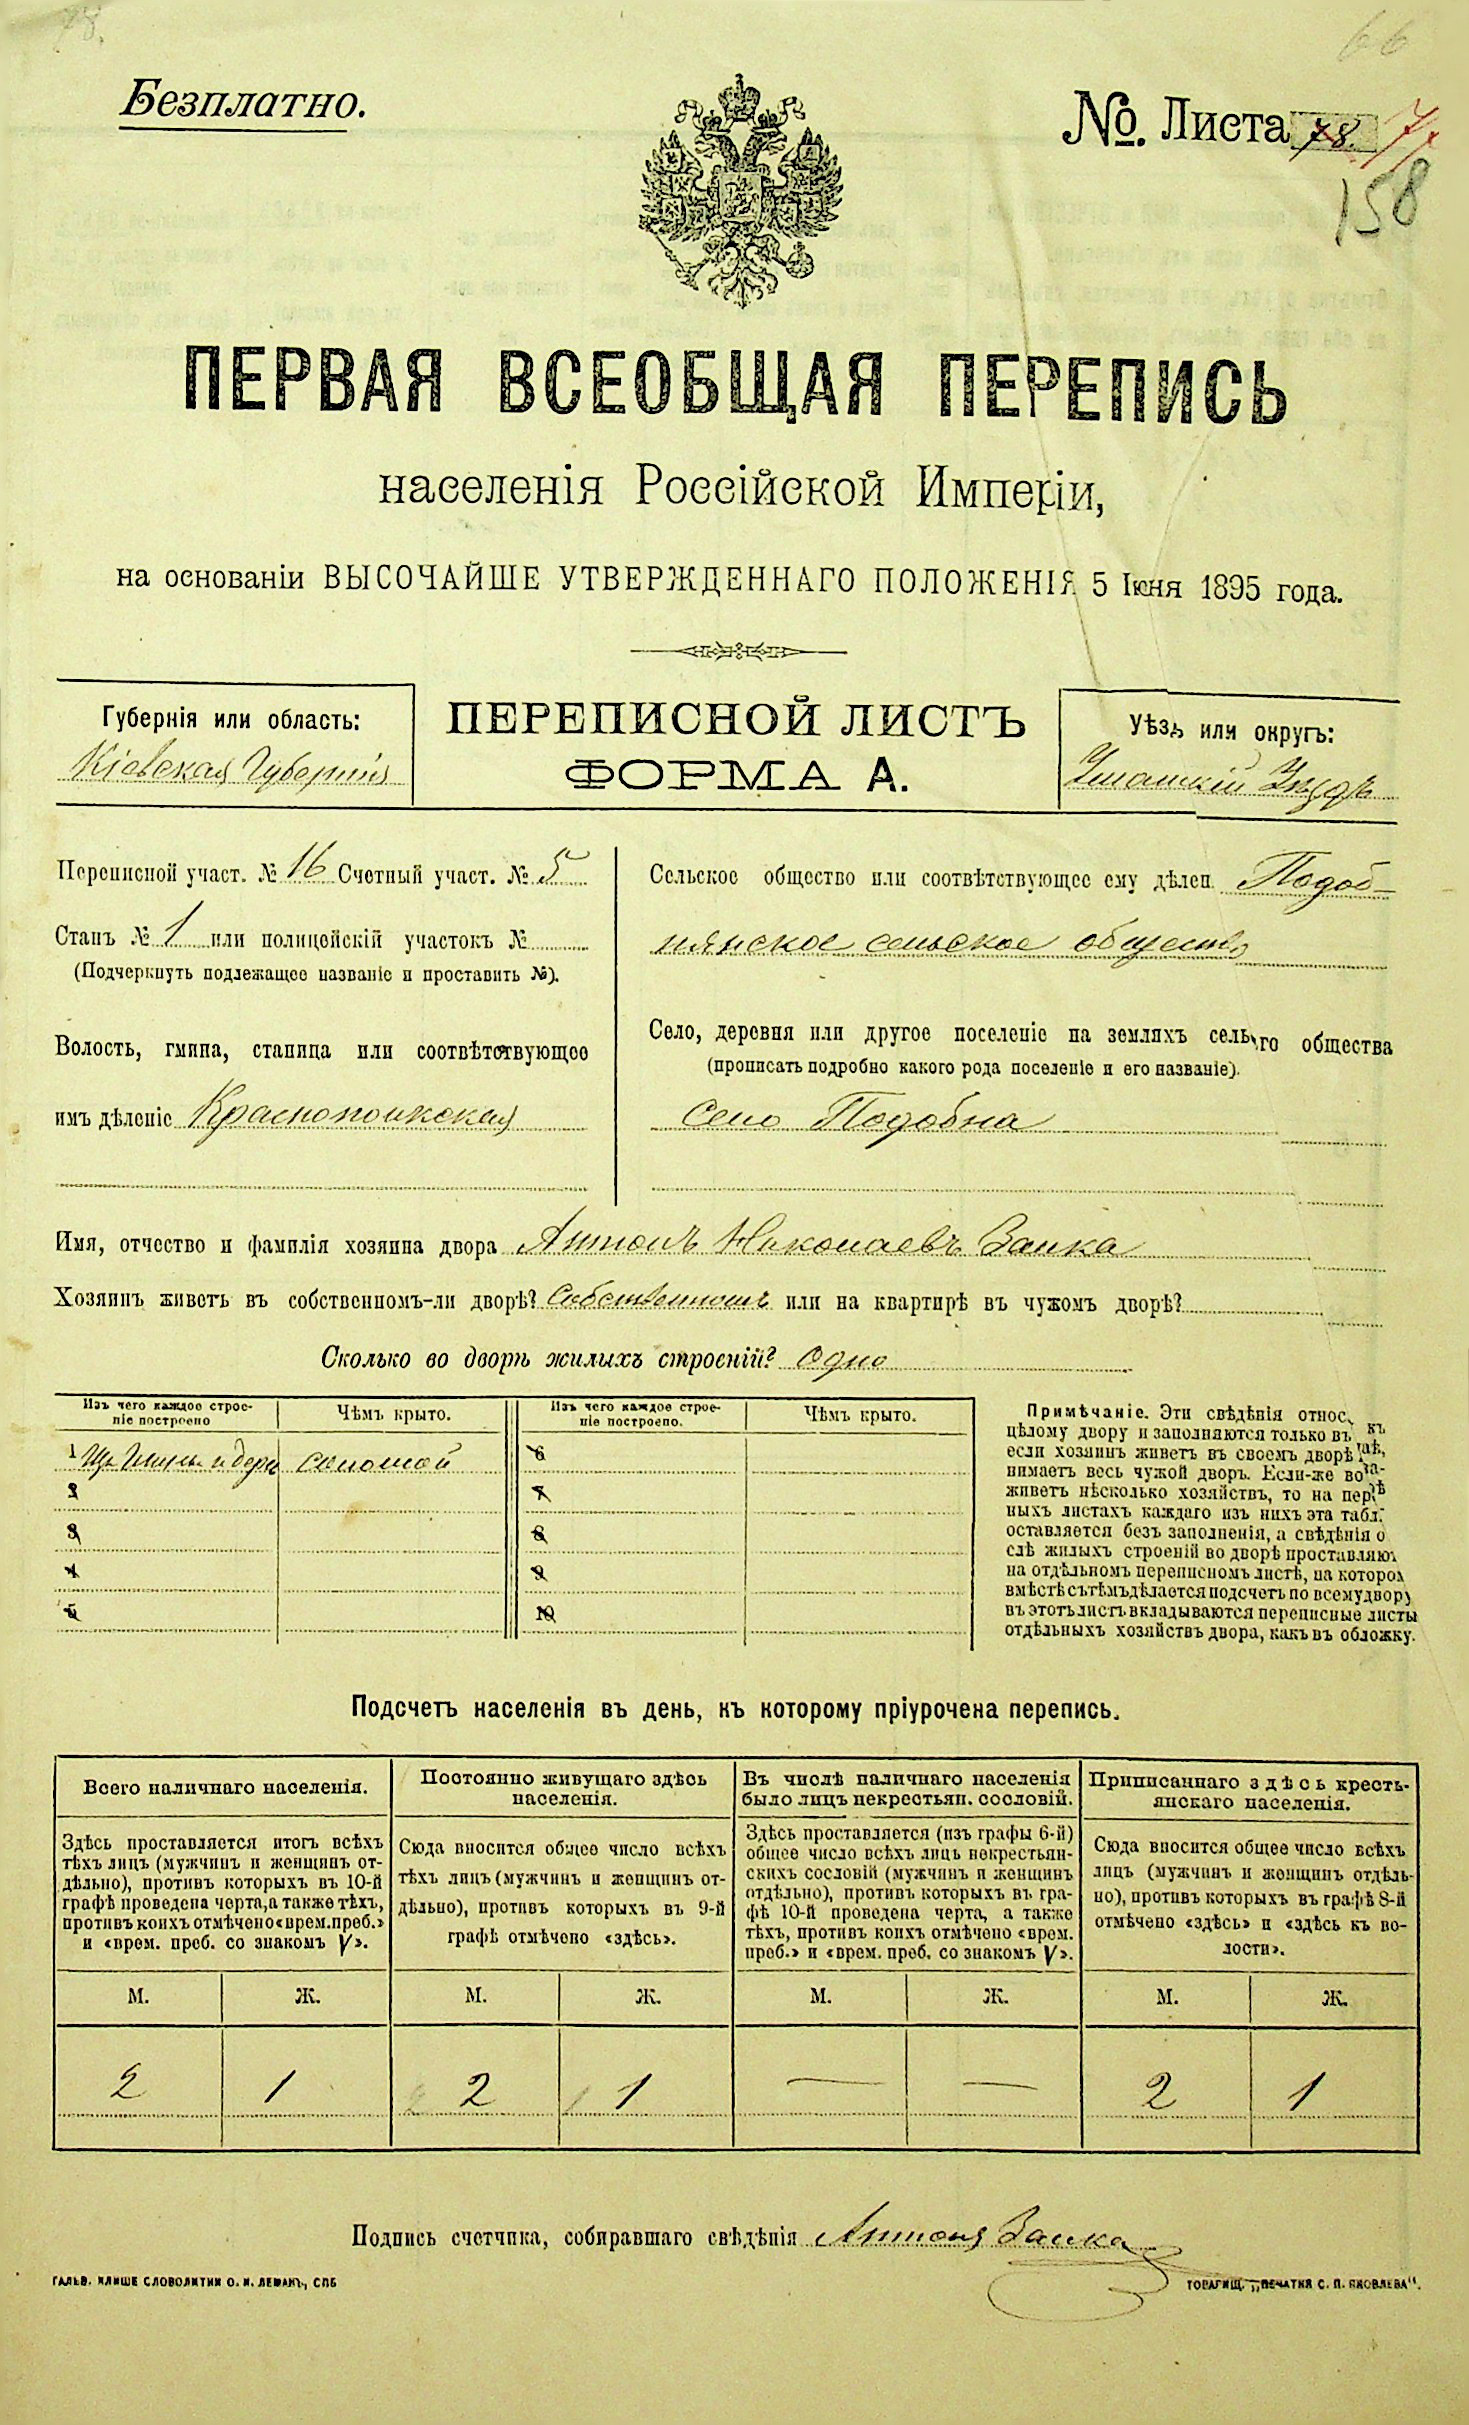 78.
66
Безплатно.
№. Листа 78. 77
158
ПЕРВАЯ ВСЕОБЩАЯ ПЕРЕПИСЬ
населенія Россійской Имперіи,
на основаніи ВЫСОЧАЙШЕ УТВЕРЖДЕННАГО ПОЛОЖЕНІЯ 5 Іюня 1895 года.
Губернія или область:
Кіевская Губернія
ПЕРЕПИСНОЙ ЛИСТЪ
ФОРМА А.
Уѣздъ или округъ:
Уманскій Уѣздъ
Переписной участ. № 16 Счетный участ. № 5
Станъ № 1 или полицейскій участокъ №
(Подчеркнуть подлежащее названіе и проставить №).
Волость, гмина, станица или соотвѣтствующее
имъ дѣленіе Краснопольская
Сельское общество или соотвѣтствующее ему дѣлен. Подоб-
нянское сельское общество
Село, деревня или другое поселеніе на земляхъ сель го общества
(прописать подробно какого рода поселеніе и его названіе).
Село Подобна
Имя, отчество и фамилія хозяина двора Антонъ Николаевъ Заика
Хозяинъ живетъ въ собственномъ-ли дворѣ? Собственномъ или на квартирѣ въ чужомъ дворѣ?
Сколько во дворѣ жилыхъ строеній? Одно
Изъ чего каждое строе-
ніе построено
Чѣмъ крыто.
Изъ чего каждое строе-
ніе построено.
Чѣмъ крыто.
1 Изъ глины и дерев соломой
2
3
4
5
6
7
8
9
10
Примѣчаніе. Эти свѣдѣнія относ. къ
цѣлому двору и заполняются только въ
если хозяинъ живетъ въ своемъ дворѣ
нимаетъ весь чужой дворъ. Если-же во
живетъ нѣсколько хозяйствъ, то на пер
ныхъ листахъ каждаго изъ нихъ эта табл.
оставляется безъ заполненія, а свѣдѣнія о
слѣ жилыхъ строеній во дворѣ проставляют
на отдѣльномъ переписномъ листѣ, на котором
вмѣстѣ съ тѣмъ дѣлается подсчетъ по всему двору
въ этотъ листъ вкладываются переписные листы
отдѣльныхъ хозяйствъ двора, какъ въ обложку.
Подсчетъ населенія въ день, къ которому пріурочена перепись.
Всего наличнаго населенія.
Здѣсь проставляется итогъ всѣхъ
тѣхъ лицъ (мужчинъ и женщинъ от-
дѣльно), противъ которыхъ въ 10-й
графѣ проведена черта, а также тѣхъ,
противъ коихъ отмѣчено «врем. преб.»
и «врем. преб. со знакомъ V».
М. Ж.
2 1
Постоянно живущаго здѣсь
населенія.
Сюда вносится общее число всѣхъ
тѣхъ лицъ (мужчинъ и женщинъ от-
дѣльно), противъ которыхъ въ 9-й
графѣ отмѣчено «здѣсь».
М. Ж.
2 1
Въ числѣ наличнаго населенія
было лицъ некрестьян. сословій.
Здѣсь проставляется (изъ графы 6-й)
общее число всѣхъ лицъ некрестьян-
скихъ сословій (мужчинъ и женщинъ
отдѣльно), противъ которыхъ въ гра-
фѣ 10-й проведена черта, а также
тѣхъ, противъ коихъ отмѣчено «врем.
преб.» и «врем. преб. со знакомъ V».
М. Ж.
— —
Приписаннаго здѣсь кресть-
янскаго населенія.
Сюда вносится общее число всѣхъ
лицъ (мужчинъ и женщинъ отдѣль-
но), противъ которыхъ въ графѣ 8-й
отмѣчено «здѣсь» и «здѣсь къ во-
лости».
М. Ж.
2 1
Подпись счетчика, собиравшаго свѣдѣнія Антонъ Заика
ГАЛЬВ. КЛИШЕ СЛОВОЛИТНИ О. И. ЛЕМАНЪ, СПБ
ТОВАРИЩ. „ПЕЧАТНЯ С. П. ЯКОВЛЕВА".